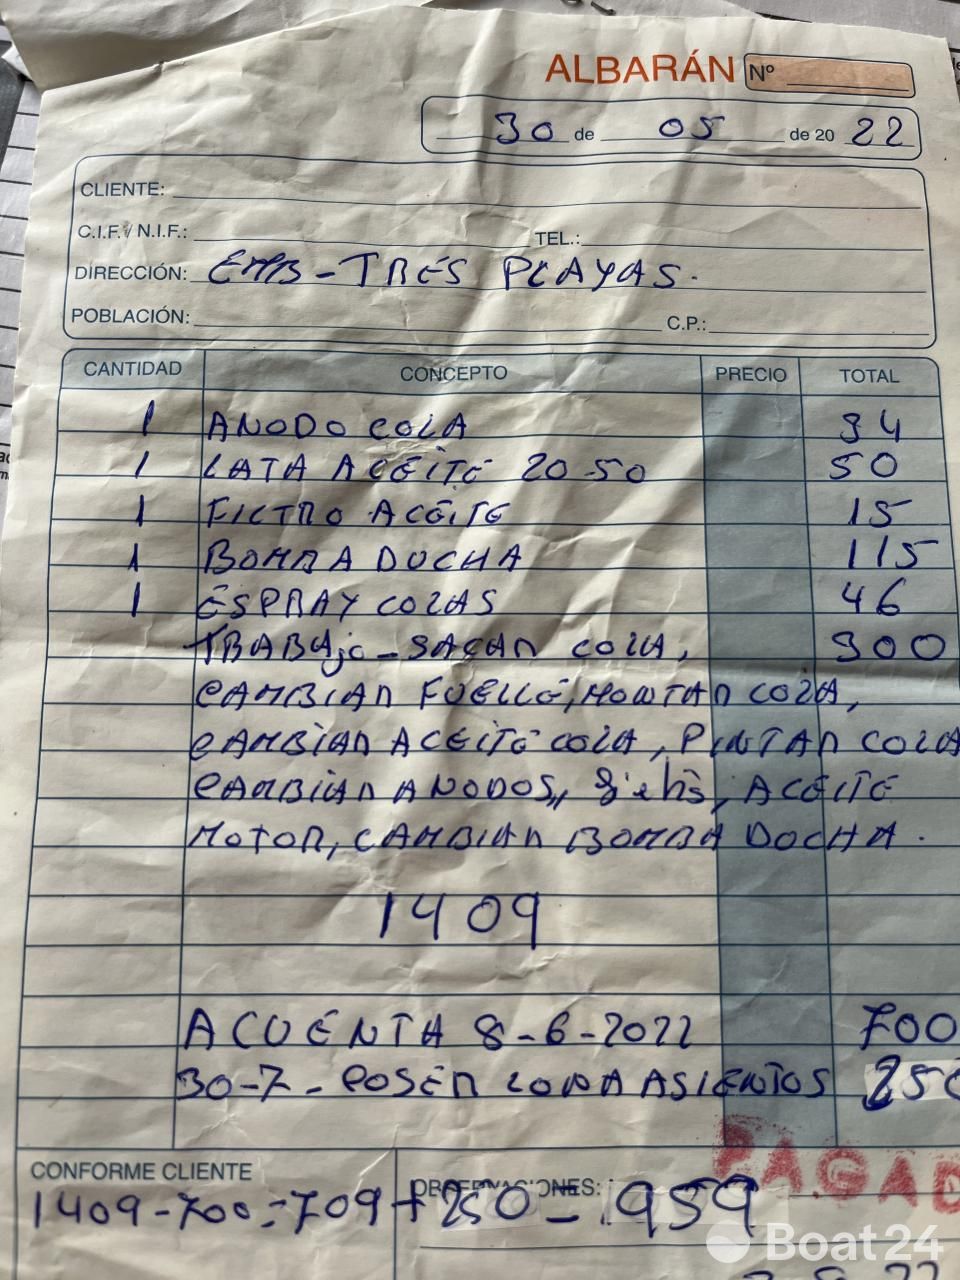 ALBARÁN Nº
30 de 05 de 20 22
CLIENTE:
C.I.F. / N.I.F.: TEL.:
DIRECCIÓN: EMB-TRES PLAYAS.
POBLACIÓN: C.P.:
CANTIDAD CONCEPTO PRECIO TOTAL
1 ANODO COLA 34
1 LATA ACEITE 20-50 50
1 FILTRO ACEITE 15
1 BOMBA DUCHA 115
1 ESPRAY COLAS 46
TRABAJO-SACAR COLA, 300
CAMBIAR FUELLE, MONTAR COLA,
CAMBIAR ACEITE COLA, PINTAR COLA
CAMBIAR ANODOS, ACEITE
MOTOR, CAMBIAR BOMBA DUCHA.
1409
ACUENTA 8-6-2022 700
30-7-COSER LONA ASIENTOS 250
PAGAD
CONFORME CLIENTE OBSERVACIONES:
1409-700=709+250=959
Boat24